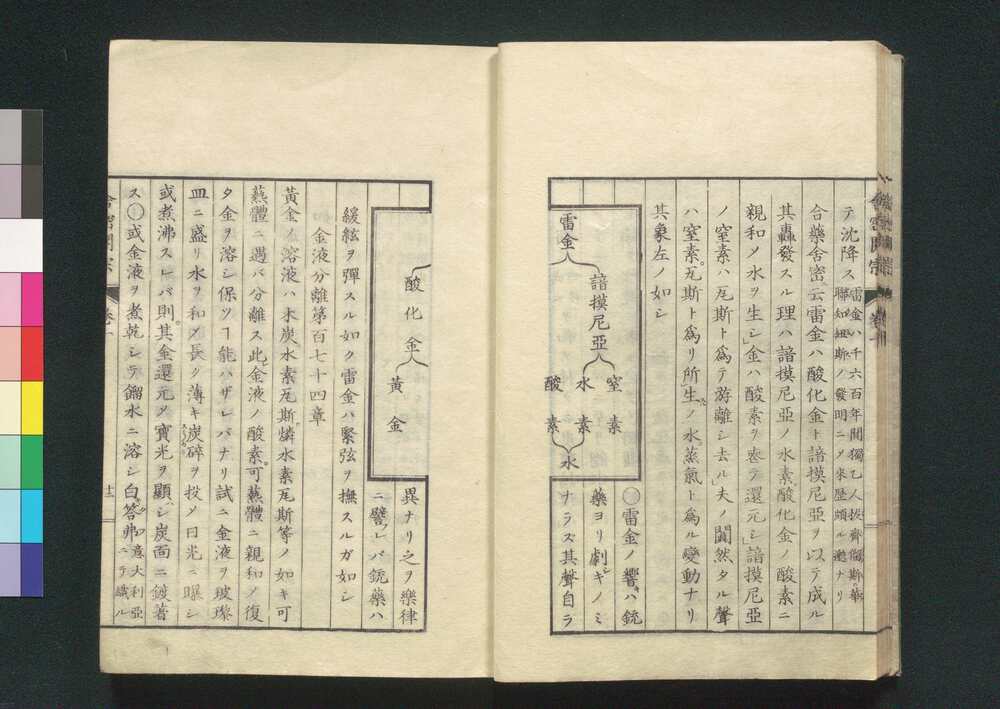 テ沈降ス雷金ハ千六百年間獨乙人抜齊僂斯華
聯知紐斯ノ發明ニメ來歴頗ル邈ナリ
合藥舎密云雷金ハ酸化金ト諳摸尼亞ヲ以テ成ル
其轟發スル理ハ諳摸尼亞ノ水素酸化金ノ酸素ニ
親和メ水ヲ生シ金ハ酸素ヲ喪テ還元シ諳摸尼亞
ノ窒素ハ瓦斯ト爲テ游離シ去ル夫ノ鬨然タル聲
ハ窒素瓦斯ト爲リ所生ノ水蒸氣ト爲ル變動ナリ
其象左ノ如シ
雷金
諳摸尼亞
窒素
水素
酸素
水
〇雷金ノ響ハ銃
藥ヨリ劇シキノミ
ナラズ其聲自ラ
酸化金
黄金
異ナリ之ヲ樂律
ニ譬フレバ銃藥ハ
緩絃ヲ彈スル如ク雷金ハ緊弦ヲ撫スルガ如シ
金液分離第百七十四章
黄金ノ溶液ハ木炭水素瓦斯燐水素瓦斯等ノ如キ可
燕體ニ遇バ分離ス此金液ノ酸素可燕體ニ親和ノ復
タ金ヲ溶シ保ツヿ能ハザレバナリ試ニ金液ヲ玻瓈
皿ニ盛リ水ヲ和メ長ク薄キ炭碎ヲ投メ日光ニ曝シ
或煮沸スレバ則其金還元メ寶光ヲ顯シ炭面ニ鍍著
ス〇或金液ヲ煮乾シテ餾水ニ溶シ白答弗意大利亞
ニテ織ル
十二